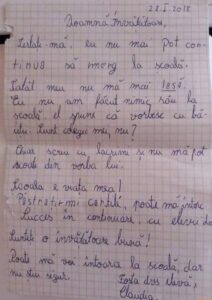 28.I.2018
Doamnă învățătoare,
Iertați-mă, eu nu mai pot con-
tinua să merg la școală.
Tatăl meu nu mă mai lasă.
Eu nu am făcut nimic rău la
școală, el spune că vorbesc cu bă-
ieții. Sunt colegii mei, nu?
Acum scriu cu lacrimi și nu mă pot
scoate din vorba lui.
Școala e viața mea!
Păstrați-mi cărțile, poate mă întorc
Succes în continuare, cu elevii
Sunteți o învățătoare bună!
Poate mă voi întoarce la școală, dar
nu știu sigur.
Fosta dvs elevă,
Claudia.